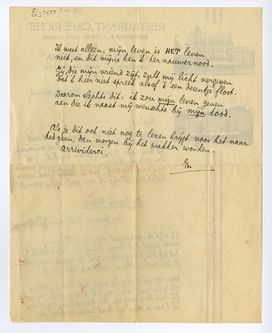 RESTAURANT, CAFÉ RICHE
Ik weet alleen, mijn leven is HET leven
niet, en dit mijne ken 'k ter nauwernood.
Zij, die mijn vriend zijt, zult mij licht vergeven
dat 'k hier niet spreek alsof 'k een deuntje floot.
Daarom slechts dit: ik zou mijn leven geven
aan die ik naast mij wenschte bij mijn dood.
Als je dit ook niet nog te lezen krijgt voor het naar
bed gaan, dan morgen bij het wakker worden.
Arrividerci.
E.